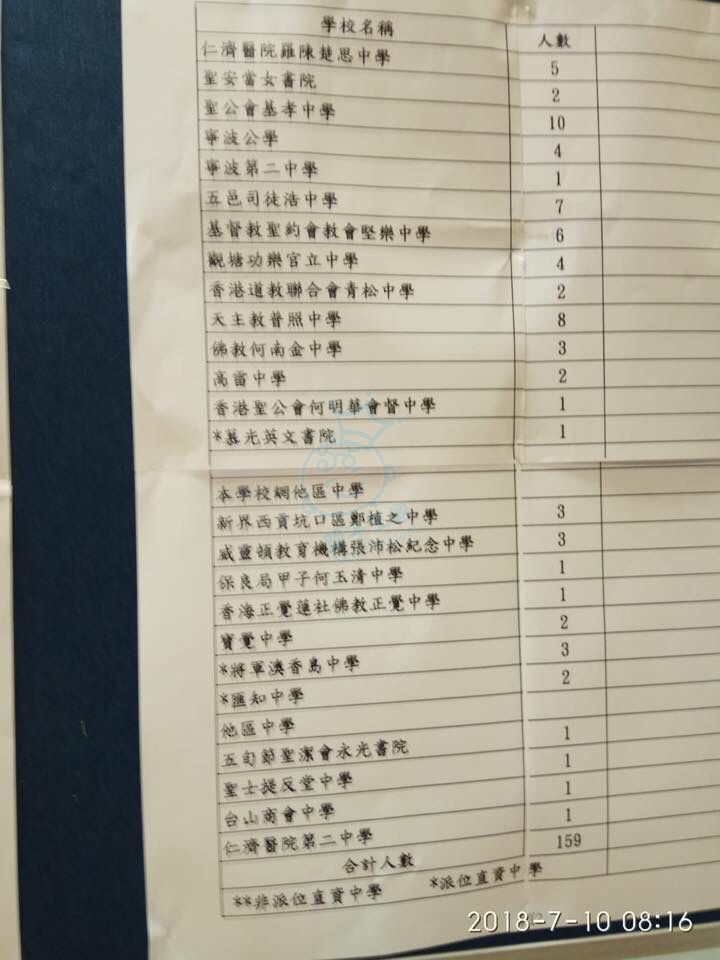 學校名稱 人數
仁濟醫院羅陳楚思中學 5
聖安當女書院 2
聖公會基孝中學 10
寧波公學 4
寧波第二中學 1
五邑司徒浩中學 7
基督教聖約會教會堅樂中學 6
觀塘功樂官立中學 4
香港道教聯合會青松中學 2
天主教普照中學 8
佛教何南金中學 3
高雷中學 2
香港聖公會何明華會督中學 1
*慕光英文書院 1
本學校網他區中學
新界西貢坑口區鄭植之中學 3
威靈頓教育機構張沛松紀念中學 3
保良局甲子何玉清中學 1
香海正覺蓮社佛教正覺中學 1
寶覺中學 2
*將軍澳香島中學 3
*匯知中學 2
他區中學
五旬節聖潔會永光書院 1
聖士提反堂中學 1
台山商會中學 1
仁濟醫院第二中學 1
合計人數 159
**非派位直資中學 *派位直資中學
2018-7-10 08:16